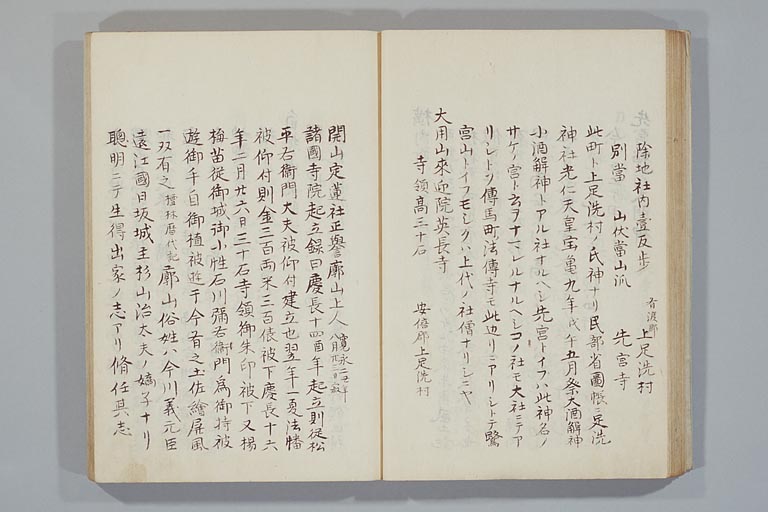 除地社内壹反歩 有渡郡 上足洗村
別當 山伏當山派 先宮寺
此町ト上足洗村ノ氏神ナリ民部省圖帳ニ足洗
神社光仁天皇宝亀九年戊午五月祭大酒解神
小酒解神トアル社ナルヘシ先宮トイフハ此神名ノ
サケノ宮ト云ヲナマレルナルヘシコノ社モ大社ニテア
リシトソ傳馬町法傳寺モ此辺リニアリシトテ鷲
宮山トイフモシクハ上代ノ社僧ナリシニヤ
大用山來迎院英長寺 安倍郡上足洗村
寺領高三十石
開山定蓮社正譽廓山上人 寛永二乙丑年八月廿六日寂
諸國寺院起立録曰慶長十四酉年起立則從松
平右衛門大夫被仰付建立也翌年一夏法幡
被仰付則金三百両米三百俵被下慶長十六
年二月廿六日三十石寺領御朱印被下又楊
梅苗從御城御小性石川彌右衛門爲御持被
遊御手自御植被遊于今有之土佐繪屏風
一双有之 檀林歴代記 廓山俗姓ハ今川義元臣
遠江國日坂城主杉山治太夫ノ嫡子ナリ
聰明ニテ生得出家ノ志アリ脩任其志